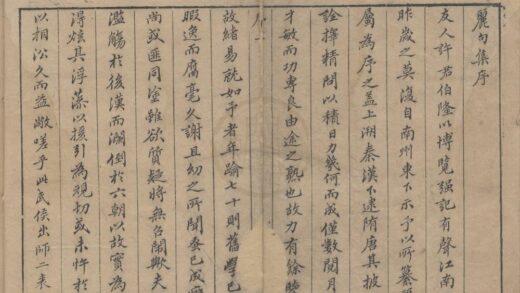 麗句集序
友人許君伯隆以博覽强記有聲江南
昨歲之莫復自南州東下示予以所纂
屬為序之蓋上溯秦漢下逮隋唐其披
詮擇精問以積日力幾何而成僅數閱月
才敏而功專良由途之熟也故力有餘
故緒易就如予者年踰七十則舊學已
暇逸而腐毫久謝且幼之所聞已成
尚或同室雖欲質疑將無聞歟夫
濫觴於後漢而瀾倒於六朝以故實為
得炫其浮藻以援引為親切或未忤於
以相沿久而益敝嗟乎此武侯出師二表